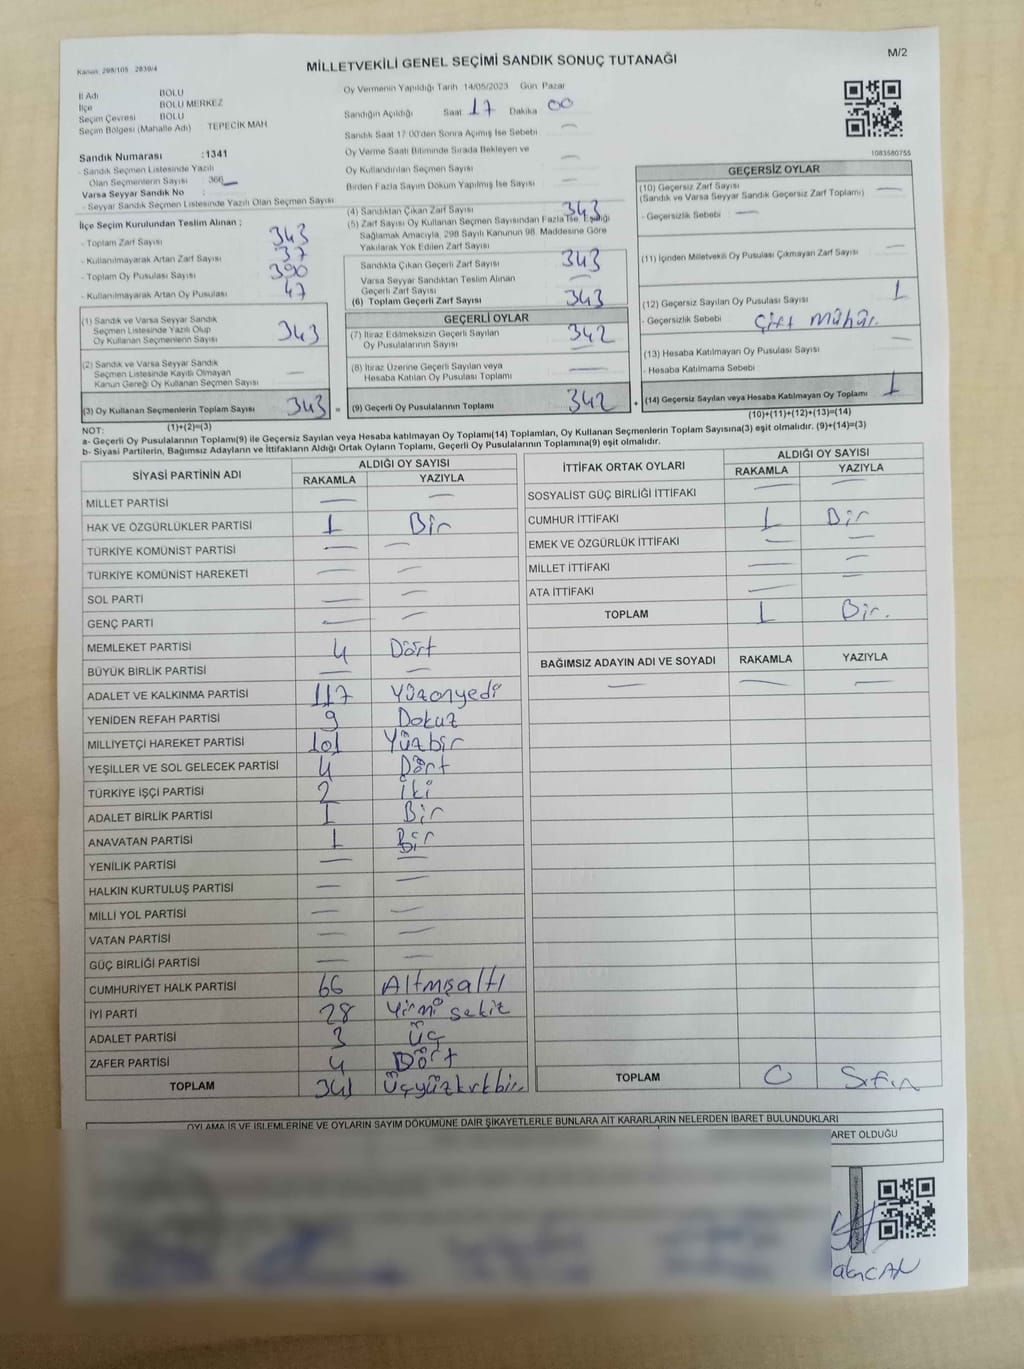 Kanun: 298/105 2839/4
MİLLETVEKİLİ GENEL SEÇİMİ SANDIK SONUÇ TUTANAĞI
M/2
İl Adı BOLU
İlçe BOLU MERKEZ
Seçim Çevresi BOLU
Seçim Bölgesi (Mahalle Adı) TEPECİK MAH
Sandık Numarası :1341
- Sandık Seçmen Listesinde Yazılı
Olan Seçmenlerin Sayısı : 366
Varsa Seyyar Sandık No :
- Seyyar Sandık Seçmen Listesinde Yazılı Olan Seçmen Sayısı
Oy Vermenin Yapıldığı Tarih 14/05/2023 Gün Pazar
Sandığın Açıldığı Saat 17 Dakika 00
Sandık Saat 17.00'den Sonra Açılmış İse Sebebi —
Oy Verme Saati Bitiminde Sırada Bekleyen ve
Oy Kullandırılan Seçmen Sayısı —
Birden Fazla Sayım Döküm Yapılmış İse Sayısı —
1083580755
İlçe Seçim Kurulundan Teslim Alınan :
- Toplam Zarf Sayısı 343
- Kullanılmayarak Artan Zarf Sayısı 37
- Toplam Oy Pusulası Sayısı 390
- Kullanılmayarak Artan Oy Pusulası 47
(1) Sandık ve Varsa Seyyar Sandık
Seçmen Listesinde Yazılı Olup
Oy Kullanan Seçmenlerin Sayısı 343
(2) Sandık ve Varsa Seyyar Sandık
Seçmen Listesinde Kayıtlı Olmayan
Kanun Gereği Oy Kullanan Seçmen Sayısı —
(3) Oy Kullanan Seçmenlerin Toplam Sayısı 343 =
(1)+(2)=(3)
(4) Sandıktan Çıkan Zarf Sayısı 343
(5) Zarf Sayısı Oy Kullanan Seçmen Sayısından Fazla İse, Eşitliği
Sağlamak Amacıyla, 298 Sayılı Kanunun 98. Maddesine Göre
Yakılarak Yok Edilen Zarf Sayısı
Sandıkta Çıkan Geçerli Zarf Sayısı 343
Varsa Seyyar Sandıktan Teslim Alınan
Geçerli Zarf Sayısı —
(6) Toplam Geçerli Zarf Sayısı 343
GEÇERLİ OYLAR
(7) İtiraz Edilmeksizin Geçerli Sayılan
Oy Pusulalarının Sayısı 342
(8) İtiraz Üzerine Geçerli Sayılan veya
Hesaba Katılan Oy Pusulası Toplamı —
(9) Geçerli Oy Pusulalarının Toplamı 342 +
GEÇERSİZ OYLAR
(10) Geçersiz Zarf Sayısı —
(Sandık ve Varsa Seyyar Sandık Geçersiz Zarf Toplamı)
- Geçersizlik Sebebi —
(11) İçinden Milletvekili Oy Pusulası Çıkmayan Zarf Sayısı —
(12) Geçersiz Sayılan Oy Pusulası Sayısı 1
- Geçersizlik Sebebi Çift mühür.
(13) Hesaba Katılmayan Oy Pusulası Sayısı —
- Hesaba Katılmama Sebebi
(14) Geçersiz Sayılan veya Hesaba Katılmayan Oy Toplamı 1
(10)+(11)+(12)+(13)=(14)
NOT:
a- Geçerli Oy Pusulalarının Toplamı(9) ile Geçersiz Sayılan veya Hesaba katılmayan Oy Toplamı(14) Toplamları, Oy Kullanan Seçmenlerin Toplam Sayısına(3) eşit olmalıdır. (9)+(14)=(3)
b- Siyasi Partilerin, Bağımsız Adayların ve İttifakların Aldığı Ortak Oyların Toplamı, Geçerli Oy Pusulalarının Toplamına(9) eşit olmalıdır.
SİYASİ PARTİNİN ADI ALDIĞI OY SAYISI
RAKAMLA YAZIYLA
MİLLET PARTİSİ — —
HAK VE ÖZGÜRLÜKLER PARTİSİ 1 Bir
TÜRKİYE KOMÜNİST PARTİSİ — —
TÜRKİYE KOMÜNİST HAREKETİ — —
SOL PARTİ — —
GENÇ PARTİ — —
MEMLEKET PARTİSİ 4 Dört
BÜYÜK BİRLİK PARTİSİ — —
ADALET VE KALKINMA PARTİSİ 117 Yüzonyedi
YENİDEN REFAH PARTİSİ 9 Dokuz
MİLLİYETÇİ HAREKET PARTİSİ 101 Yüzbir
YEŞİLLER VE SOL GELECEK PARTİSİ 4 Dört
TÜRKİYE İŞÇİ PARTİSİ 2 İki
ADALET BİRLİK PARTİSİ 1 Bir
ANAVATAN PARTİSİ 1 Bir
YENİLİK PARTİSİ — —
HALKIN KURTULUŞ PARTİSİ — —
MİLLİ YOL PARTİSİ — —
VATAN PARTİSİ — —
GÜÇ BİRLİĞİ PARTİSİ — —
CUMHURİYET HALK PARTİSİ 66 Altmışaltı
İYİ PARTİ 28 Yirmi sekiz
ADALET PARTİSİ 3 Üç
ZAFER PARTİSİ 4 Dört
TOPLAM 341 Üçyüzkırkbir
İTTİFAK ORTAK OYLARI ALDIĞI OY SAYISI
RAKAMLA YAZIYLA
SOSYALİST GÜÇ BİRLİĞİ İTTİFAKI — —
CUMHUR İTTİFAKI 1 Bir
EMEK VE ÖZGÜRLÜK İTTİFAKI — —
MİLLET İTTİFAKI — —
ATA İTTİFAKI — —
TOPLAM 1 Bir.
BAĞIMSIZ ADAYIN ADI VE SOYADI RAKAMLA YAZIYLA
— — —
TOPLAM 0 Sıfır
OYLAMA İŞ VE İŞLEMLERİNE VE OYLARIN SAYIM DÖKÜMÜNE DAİR ŞİKAYETLERLE BUNLARA AİT KARARLARIN NELERDEN İBARET BULUNDUKLARI
ARET OLDUĞU